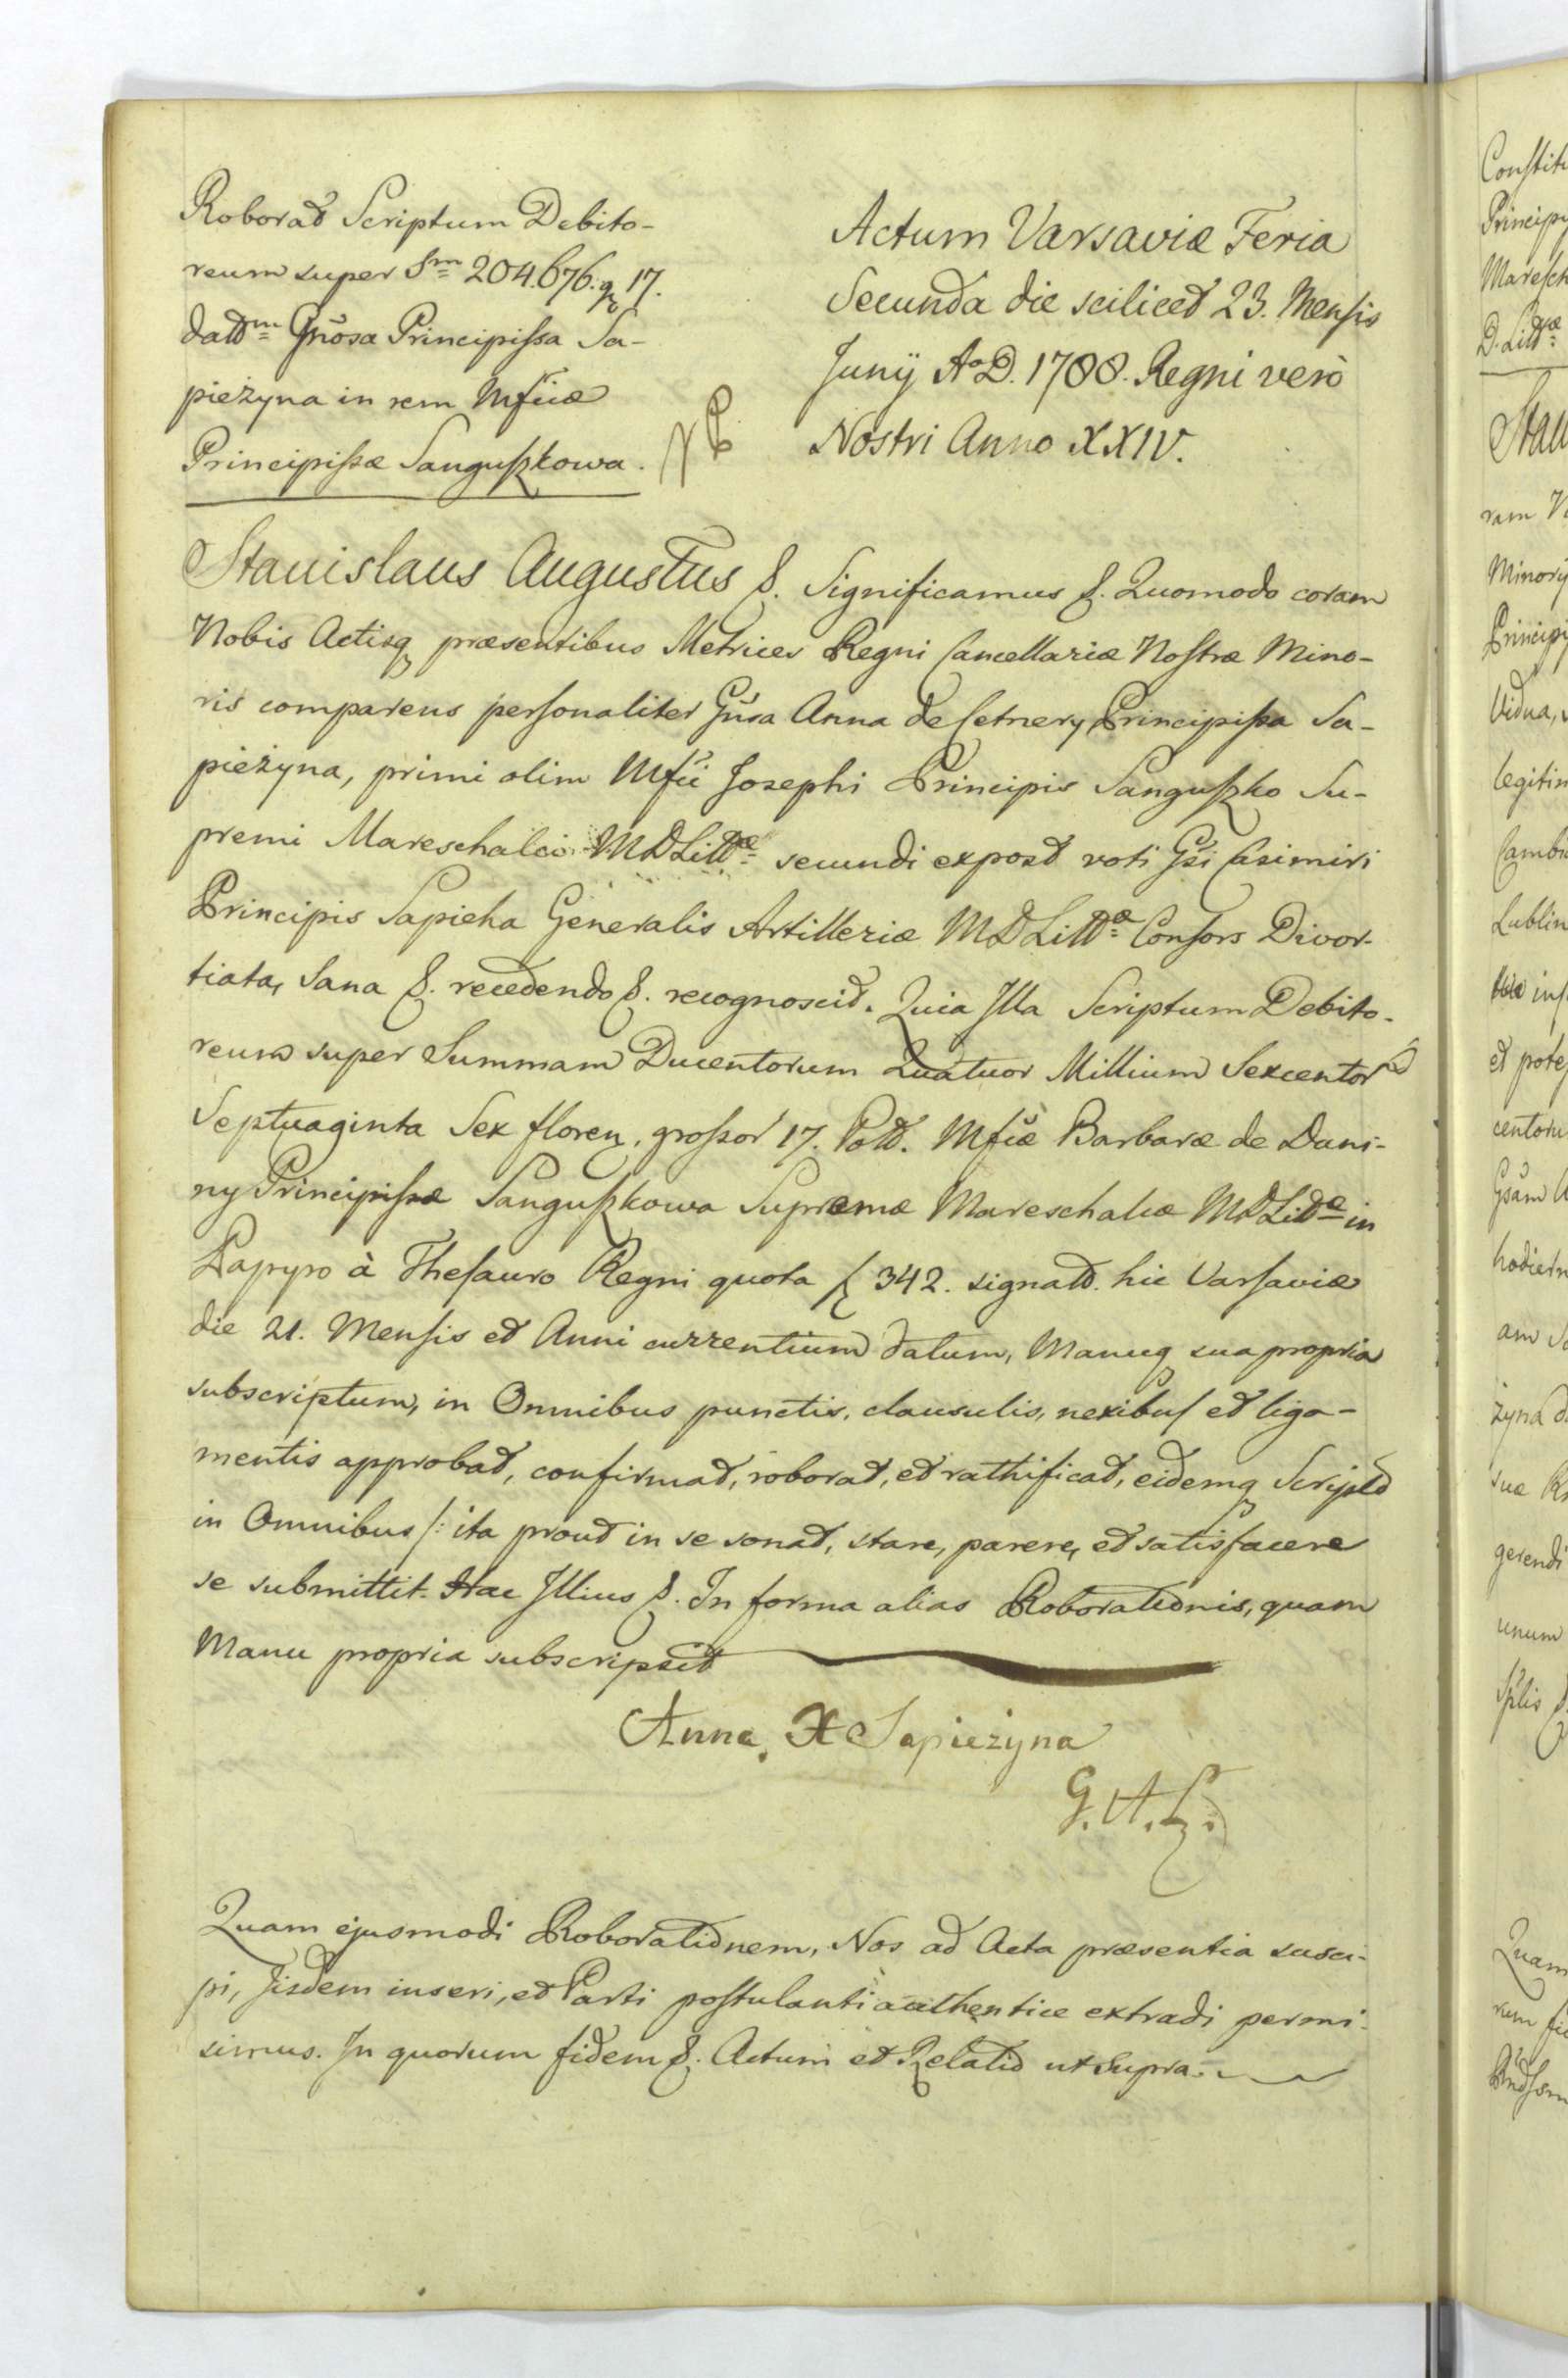 Roborat Scriptum Debito-
reum super Sm 204.676. gr 17.
datt m Gnosa Principissa Sa-
pieżyna in rem Mficæ
Principissæ Sanguszkowa.
Actum Varsaviæ Feria
Secunda die scilicet 23. Mensis
Junij A.D. 1788. Regni verò
Nostri Anno XXIV.
Stanislaus Augustus &. Significamus &. Quomodo coram
Nobis Actisq præsentibus Metrices Regni Cancellariæ Nostræ Mino-
ris comparens personaliter Gnsa Anna de Cetnery Principissa Sa-
pieżyna, primi olim Mfci Josephi Principis Sanguszko Su-
premi Mareschalci MDLittæ secundi expost voti Gsi Casimiri
Principis Sapieha Generalis Artilleriæ MDLittæ Consors Divor-
tiata, Sana &. recedendo &. recognoscit. Quia Illa Scriptum Debito-
reum super Summam Ducentorum Quatuor Millium Sexcentor
Septuaginta Sex floren, grossor 17. Poll. Mficæ Barbaræ de Duni-
ny Principissæ Sanguszkowa Supremæ Mareschalcæ MDLittæ in
Papyro à Thesauro Regni quota f 342. signatt. hic Varsaviæ
die 21. Mensis et Anni currentium datum, Manuq sua propria
subscriptum, in Omnibus punctis, clausulis, nexibus et liga-
mentis approbat, confirmat, roborat, et rathificat, eidemq Scripto
in Omnibus /: ita prout in se sonat, stare, parere, et satisfacere
se submittit. Hac Illius &. In forma alias Roborationis, quam
Manu propria subscripsit
Anna X Sapieżyna
G.A.L.
Quam ejusmodi Roborationem, Nos ad Acta præsentia susci-
pi, Jisdem inseri, et Parti postulanti authentice extradi permi-
simus. In quorum fidem &. Actum et Relatio ut Supra.